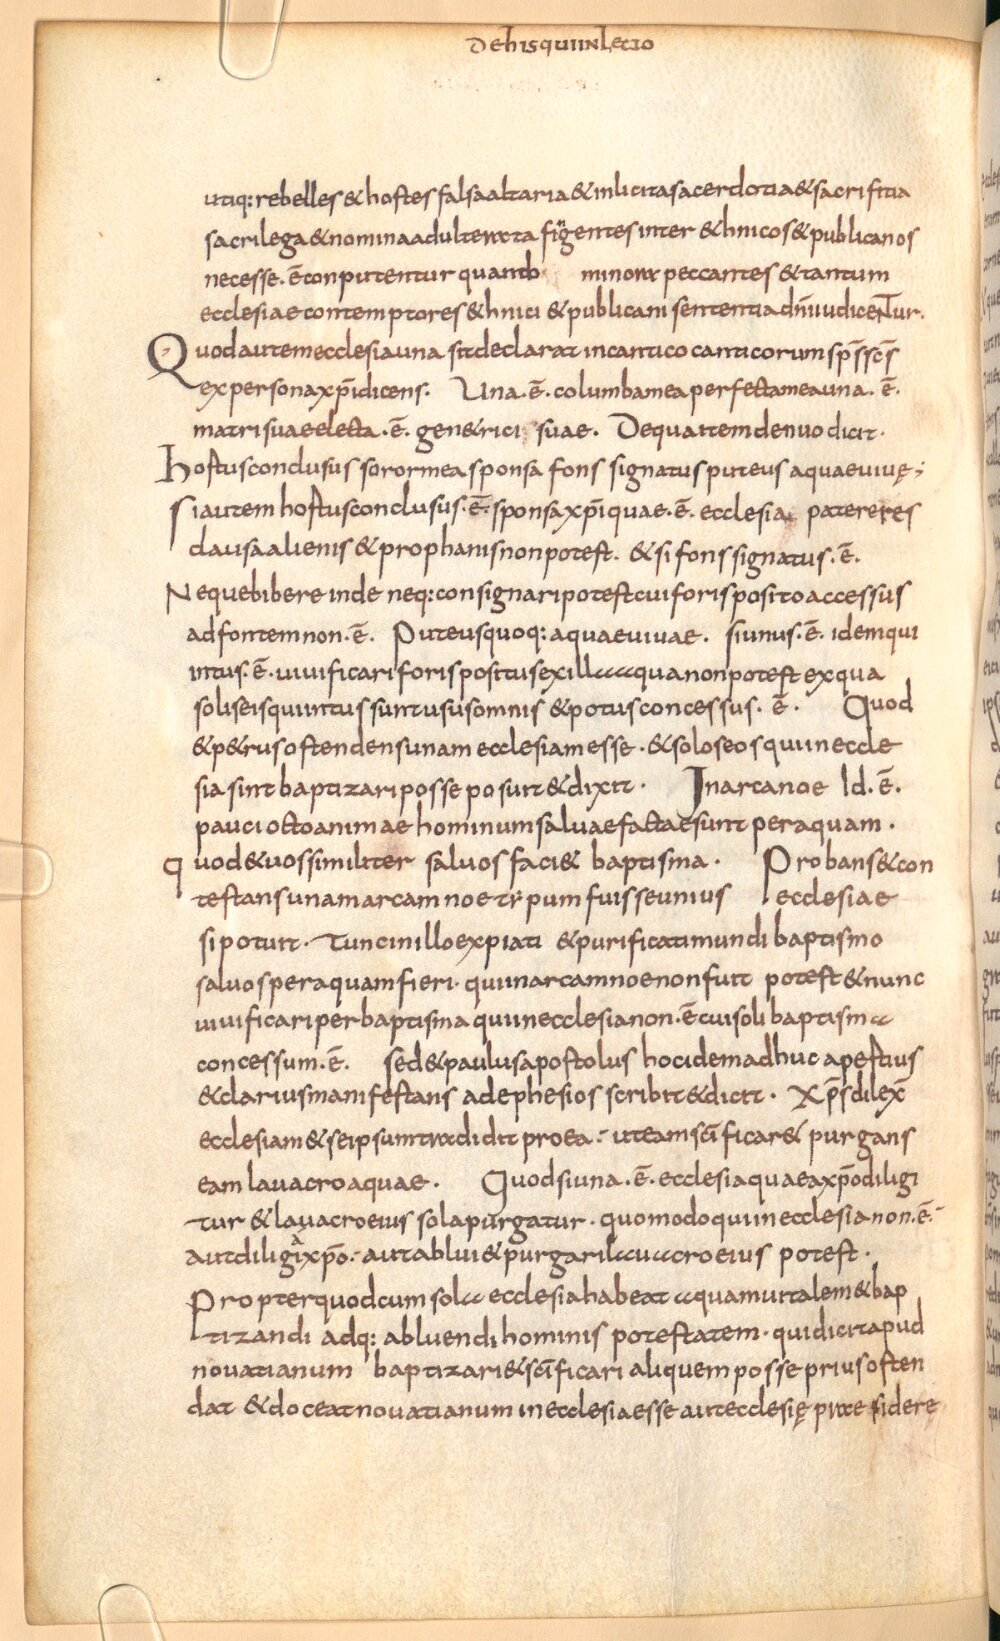 De his qui in lecto
utiq: rebelles & hostes falsa altaria & inlicita sacerdotia & sacrifitia
sacrilega & nomina adulterata fingentes inter & hnicos & publicanos
necesse. ē conputentur quanto minora peccantes & tantum
ecclesiae contemptores & hnici & publicani sententia dn̄i iudicentur.
Quod autem ecclesia una sit declarat in cantico canticorum sp̄s sc̄s
ex persona xp̄i dicens. Una. ē. columba mea perfecta mea una. ē.
matri suae electa. ē. gen&rici suae. De qua item denuo dicit.
Hostus conclusus soror mea sponsa fons signatus puteus aquae vivę;
Si autem hostus conclusus. ē. sponsa xp̄i quae. ē. ecclesia patere res
clausa alienis & prophanis non potest. & si fons signatus. ē.
Neque bibere inde neq: consignari potest cui foris posito accessus
ad fontem non. ē. Puteus quoq: aquae vivae. si unus. ē. idem qui
intus. ē. vivificari foris positus ex illa aqua non potest ex qua
solis eis qui intus sunt usus omnis & potus concessus. ē. Quod
& p&rus ostendens unam ecclesiam esse. & solos eos qui in eccle
sia sint baptizari posse posuit & dixit. In arca noe Id. ē.
pauci octo animae hominum salvae factae sunt per aquam.
quod & vos similiter salvos faci& baptisma. Probans & con
testans unam arcam noe typum fuisse unius ecclesiae
si potuit. Tunc in illo expiati & purificati mundi baptismo
salvos per aquam fieri. qui in arcam noe non fuit potest & nunc
vivificari per baptisma qui in ecclesia non. ē cui soli baptisma
concessum. ē. sed & paulus apostolus hoc idem adhuc apestius
& clarius manifestans ad ephesios scribit & dicit. Xp̄s dilex̄
ecclesiam & se ipsum tradidit pro ea. ut eam sc̄ificar& purgans
eam lavacro aquae. Quod si una. ē. ecclesia quae a xp̄o diligi
tur & lavacro eius sola purgatur. quomodo qui in ecclesia non. ē.
aut diligi a xp̄o. aut ablui & purgari lavacro eius potest.
Propter quod cum sola ecclesia habeat aquam vitalem & bap
tizandi adq: abluendi hominis potestatem. qui dicit apud
novatianum baptizari & sc̄ificari aliquem posse prius osten
dat & doceat novatianum in ecclesia esse aut ecclesię praesiderę